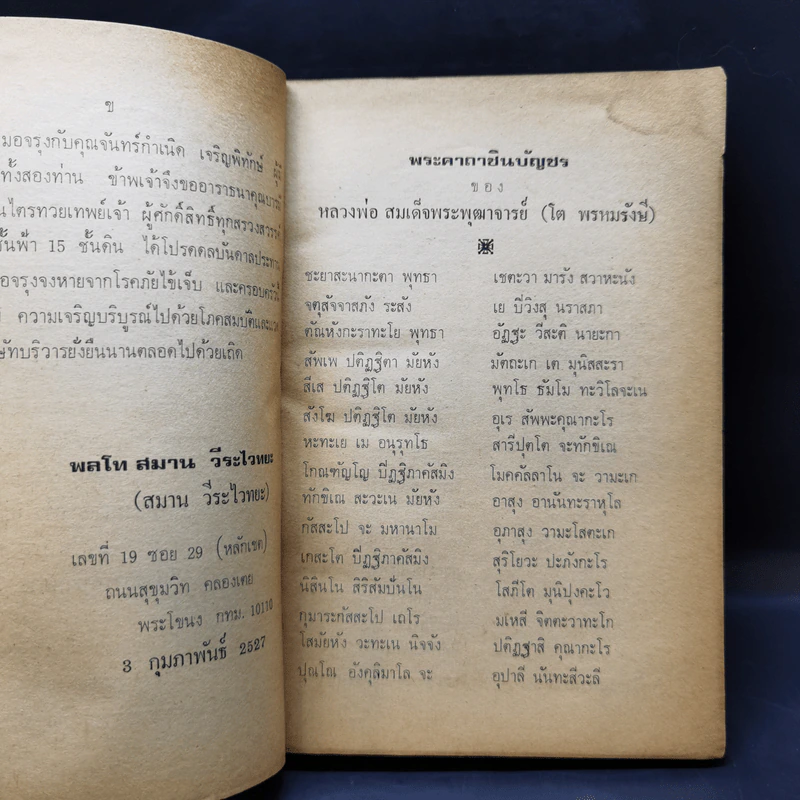 ข
มอจรุงกับคุณจันทร์กำเนิด เจริญพิทักษ์
ทั้งสองท่าน ข้าพเจ้าจึงขออาราธนาคุณบารมี
นไตรทวยเทพย์เจ้า ผู้ศักดิ์สิทธิ์ทุกสรวงสวรรค์
ชั้นฟ้า 15 ชั้นดิน ได้โปรดดลบันดาลประทาน
อจรุงจงหายจากโรคภัยไข้เจ็บ และครอบครัวนี้
ความเจริญบริบูรณ์ไปด้วยโภคสมบัติและ
ษัทบริวารยั่งยืนนานตลอดไปด้วยเถิด
พลโท สมาน วีระไวทยะ
(สมาน วีระไวทยะ)
เลขที่ 19 ซอย 29 (หลักเขต)
ถนนสุขุมวิท คลองเตย
พระโขนง กทม. 10110
3 กุมภาพันธ์ 2527
พระคาถาชินบัญชร
ของ
หลวงพ่อ สมเด็จพระพุฒาจารย์ (โต พรหมรังษี)
ชะยาสะนากะตา พุทธา เชตะวา มารัง สวาหะนัง
จตุสัจจาสภัง ระสัง เย ปิวิงสุ นราสภา
ตัณหังกะราทะโย พุทธา อัฏฐะ วีสะติ นายะกา
สัพเพ ปติฏฐิตา มัยหัง มัตถะเก เต มุนิสสะรา
สีเส ปติฏฐิโต มัยหัง พุทโธ ธัมโม ทะวิโลจะเน
สังโฆ ปติฏฐิโต มัยหัง อุเร สัพพะคุณากะโร
หะทะเย เม อนุรุทโธ สารีปุตโต จะทักขิเณ
โกณฑัญโญ ปิฏฐิภาคัสมิง โมคคัลลาโน จะ วามะเก
ทักขิเณ สะวะเน มัยหัง อาสุง อานันทะราหุโล
กัสสะโป จะ มหานาโม อุภาสุง วามะโสตะเก
เกสะโต ปิฏฐิภาคัสมิง สุริโยวะ ปะภังกะโร
นิสินโน สิริสัมปันโน โสภีโต มุนิปุงคะโว
กุมาระกัสสะโป เถโร มเหสี จิตตะวาทะโก
โสมัยหัง วะทะเน นิจจัง ปติฏฐาสิ คุณากะโร
ปุณโณ อังคุลิมาโล จะ อุปาลี นันทะสีวะลี